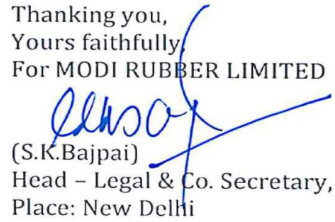 Thanking you,
Yours faithfully,
For MODI RUBBER LIMITED
(S.K.Bajpai)
Head – Legal & Co. Secretary,
Place: New Delhi